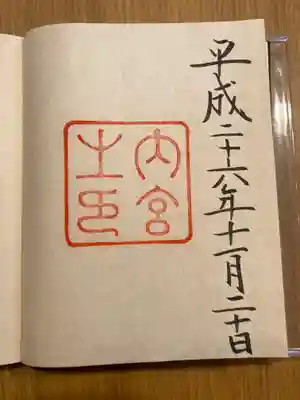 平成二十六年十一月二十日
内宮
之印